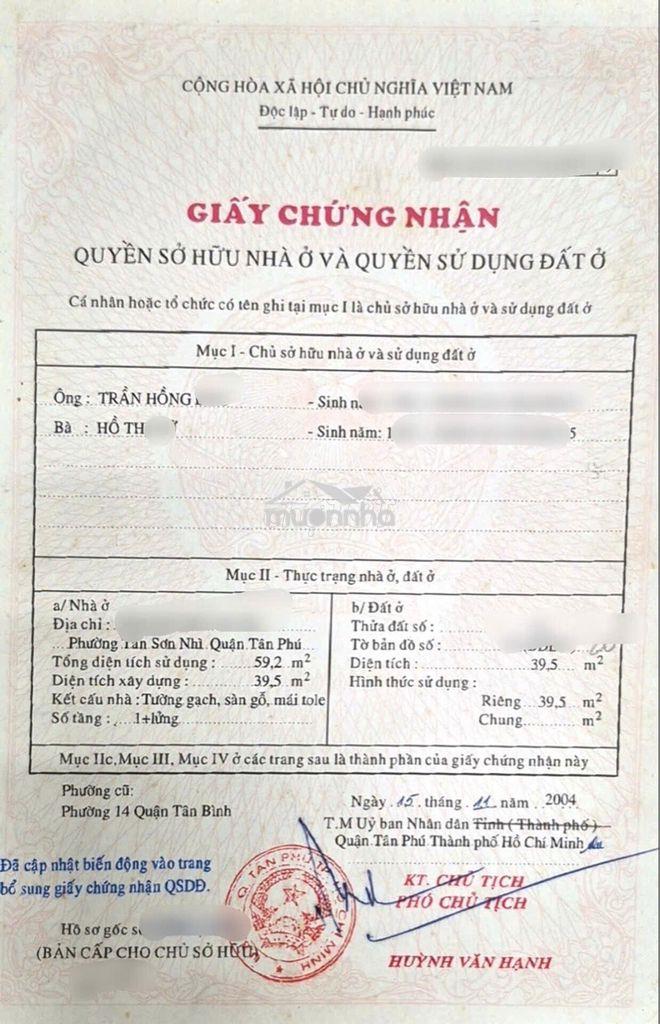 CỘNG HÒA XÃ HỘI CHỦ NGHĨA VIỆT NAM
Độc lập - Tự do - Hạnh phúc
GIẤY CHỨNG NHẬN
QUYỀN SỞ HỮU NHÀ Ở VÀ QUYỀN SỬ DỤNG ĐẤT Ở
Cá nhân hoặc tổ chức có tên ghi tại mục I là chủ sở hữu nhà ở và sử dụng đất ở
Mục I - Chủ sở hữu nhà ở và sử dụng đất ở
Ông : TRẦN HỒNG - Sinh
Bà : HỒ - Sinh năm: 1 5
muonnha
Mục II - Thực trạng nhà ở, đất ở
a/ Nhà ở
Địa chỉ :
Phường Tân Sơn Nhì Quận Tân Phú
Tổng diện tích sử dụng : 59,2 m²
Diện tích xây dựng : 39,5 m²
Kết cấu nhà : Tường gạch, sàn gỗ, mái tole
Số tầng : 1+lửng
b/ Đất ở
Thửa đất số :
Tờ bản đồ số :
Diện tích : 39,5 m²
Hình thức sử dụng :
Riêng 39,5 m²
Chung m²
Mục IIc, Mục III, Mục IV ở các trang sau là thành phần của giấy chứng nhận này
Phường cũ:
Phường 14 Quận Tân Bình
Ngày 15 tháng 11 năm 2004
T.M Uỷ ban Nhân dân Tỉnh ( Thành phố )
Quận Tân Phú Thành phố Hồ Chí Minh
Đã cập nhật biến động vào trang
bổ sung giấy chứng nhận QSDĐ.
KT. CHỦ TỊCH
PHÓ CHỦ TỊCH
Q TÂN PHÚ T.P HỒ CHÍ MINH
Hồ sơ gốc
(BẢN CẤP CHO CHỦ SỞ HỮU)
HUỲNH VĂN HẠNH